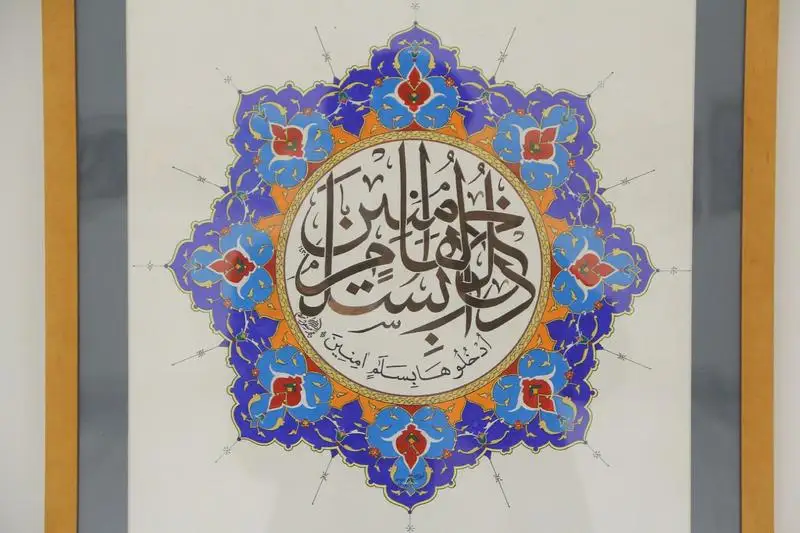 ادخلوها بسلام امنين
اُدْخُلُوهَا بِسَلَٰمٍ اٰمِنِينَ